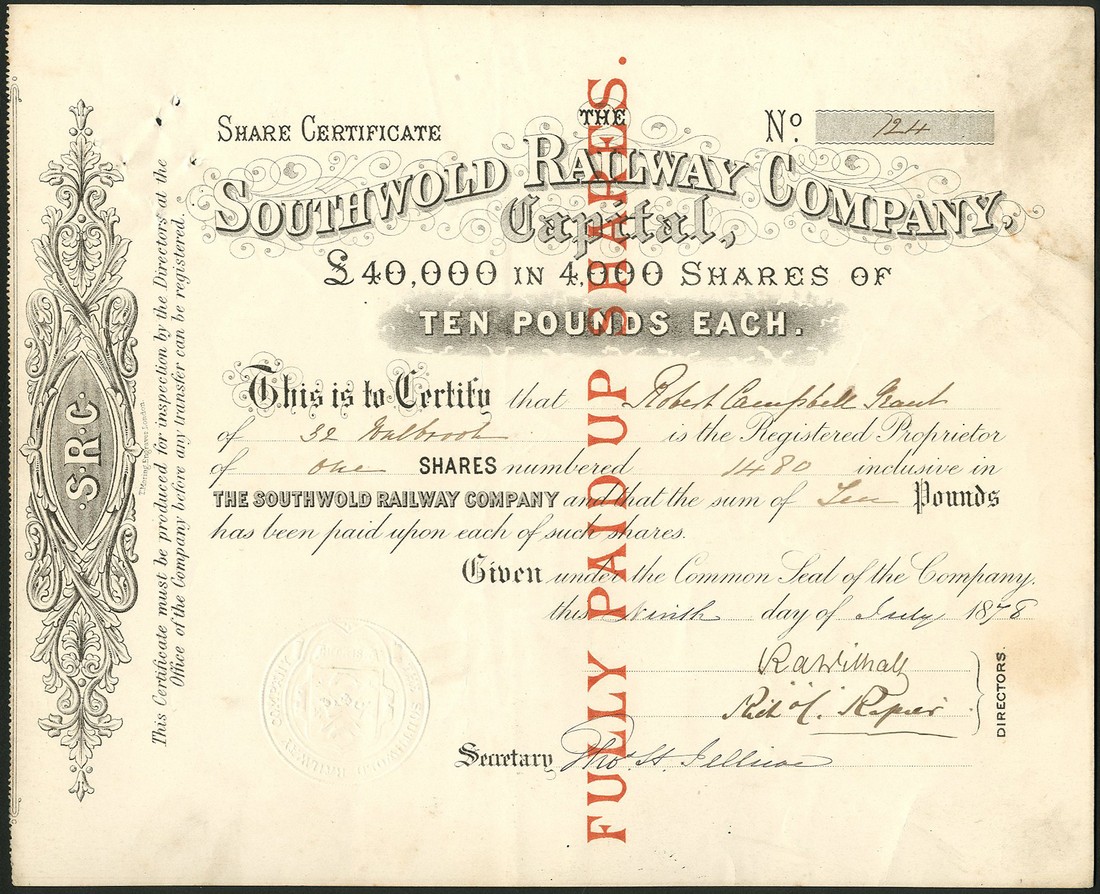 SHARE CERTIFICATE
No. 124
THE
SOUTHWOLD RAILWAY COMPANY,
Capital,
£40,000 IN 4,000 SHARES OF
TEN POUNDS EACH.
This is to Certify that Robert Campbell Grant
of 32 Walbrook is the Registered Proprietor
of One SHARES numbered 1480 inclusive in
THE SOUTHWOLD RAILWAY COMPANY and that the sum of Ten Pounds
has been paid upon each of such shares.
Given under the Common Seal of the Company,
this Ninth day of July 1878
R A Withall
Rich C. Rapier
DIRECTORS.
Secretary Tho H. Jellicoe
FULLY PAID UP SHARES.
S.R.C.
T. Moring, Engraver, London.
This Certificate must be produced for inspection by the Directors at the
Office of the Company before any transfer can be registered.
THE SOUTHWOLD RAILWAY COMPANY